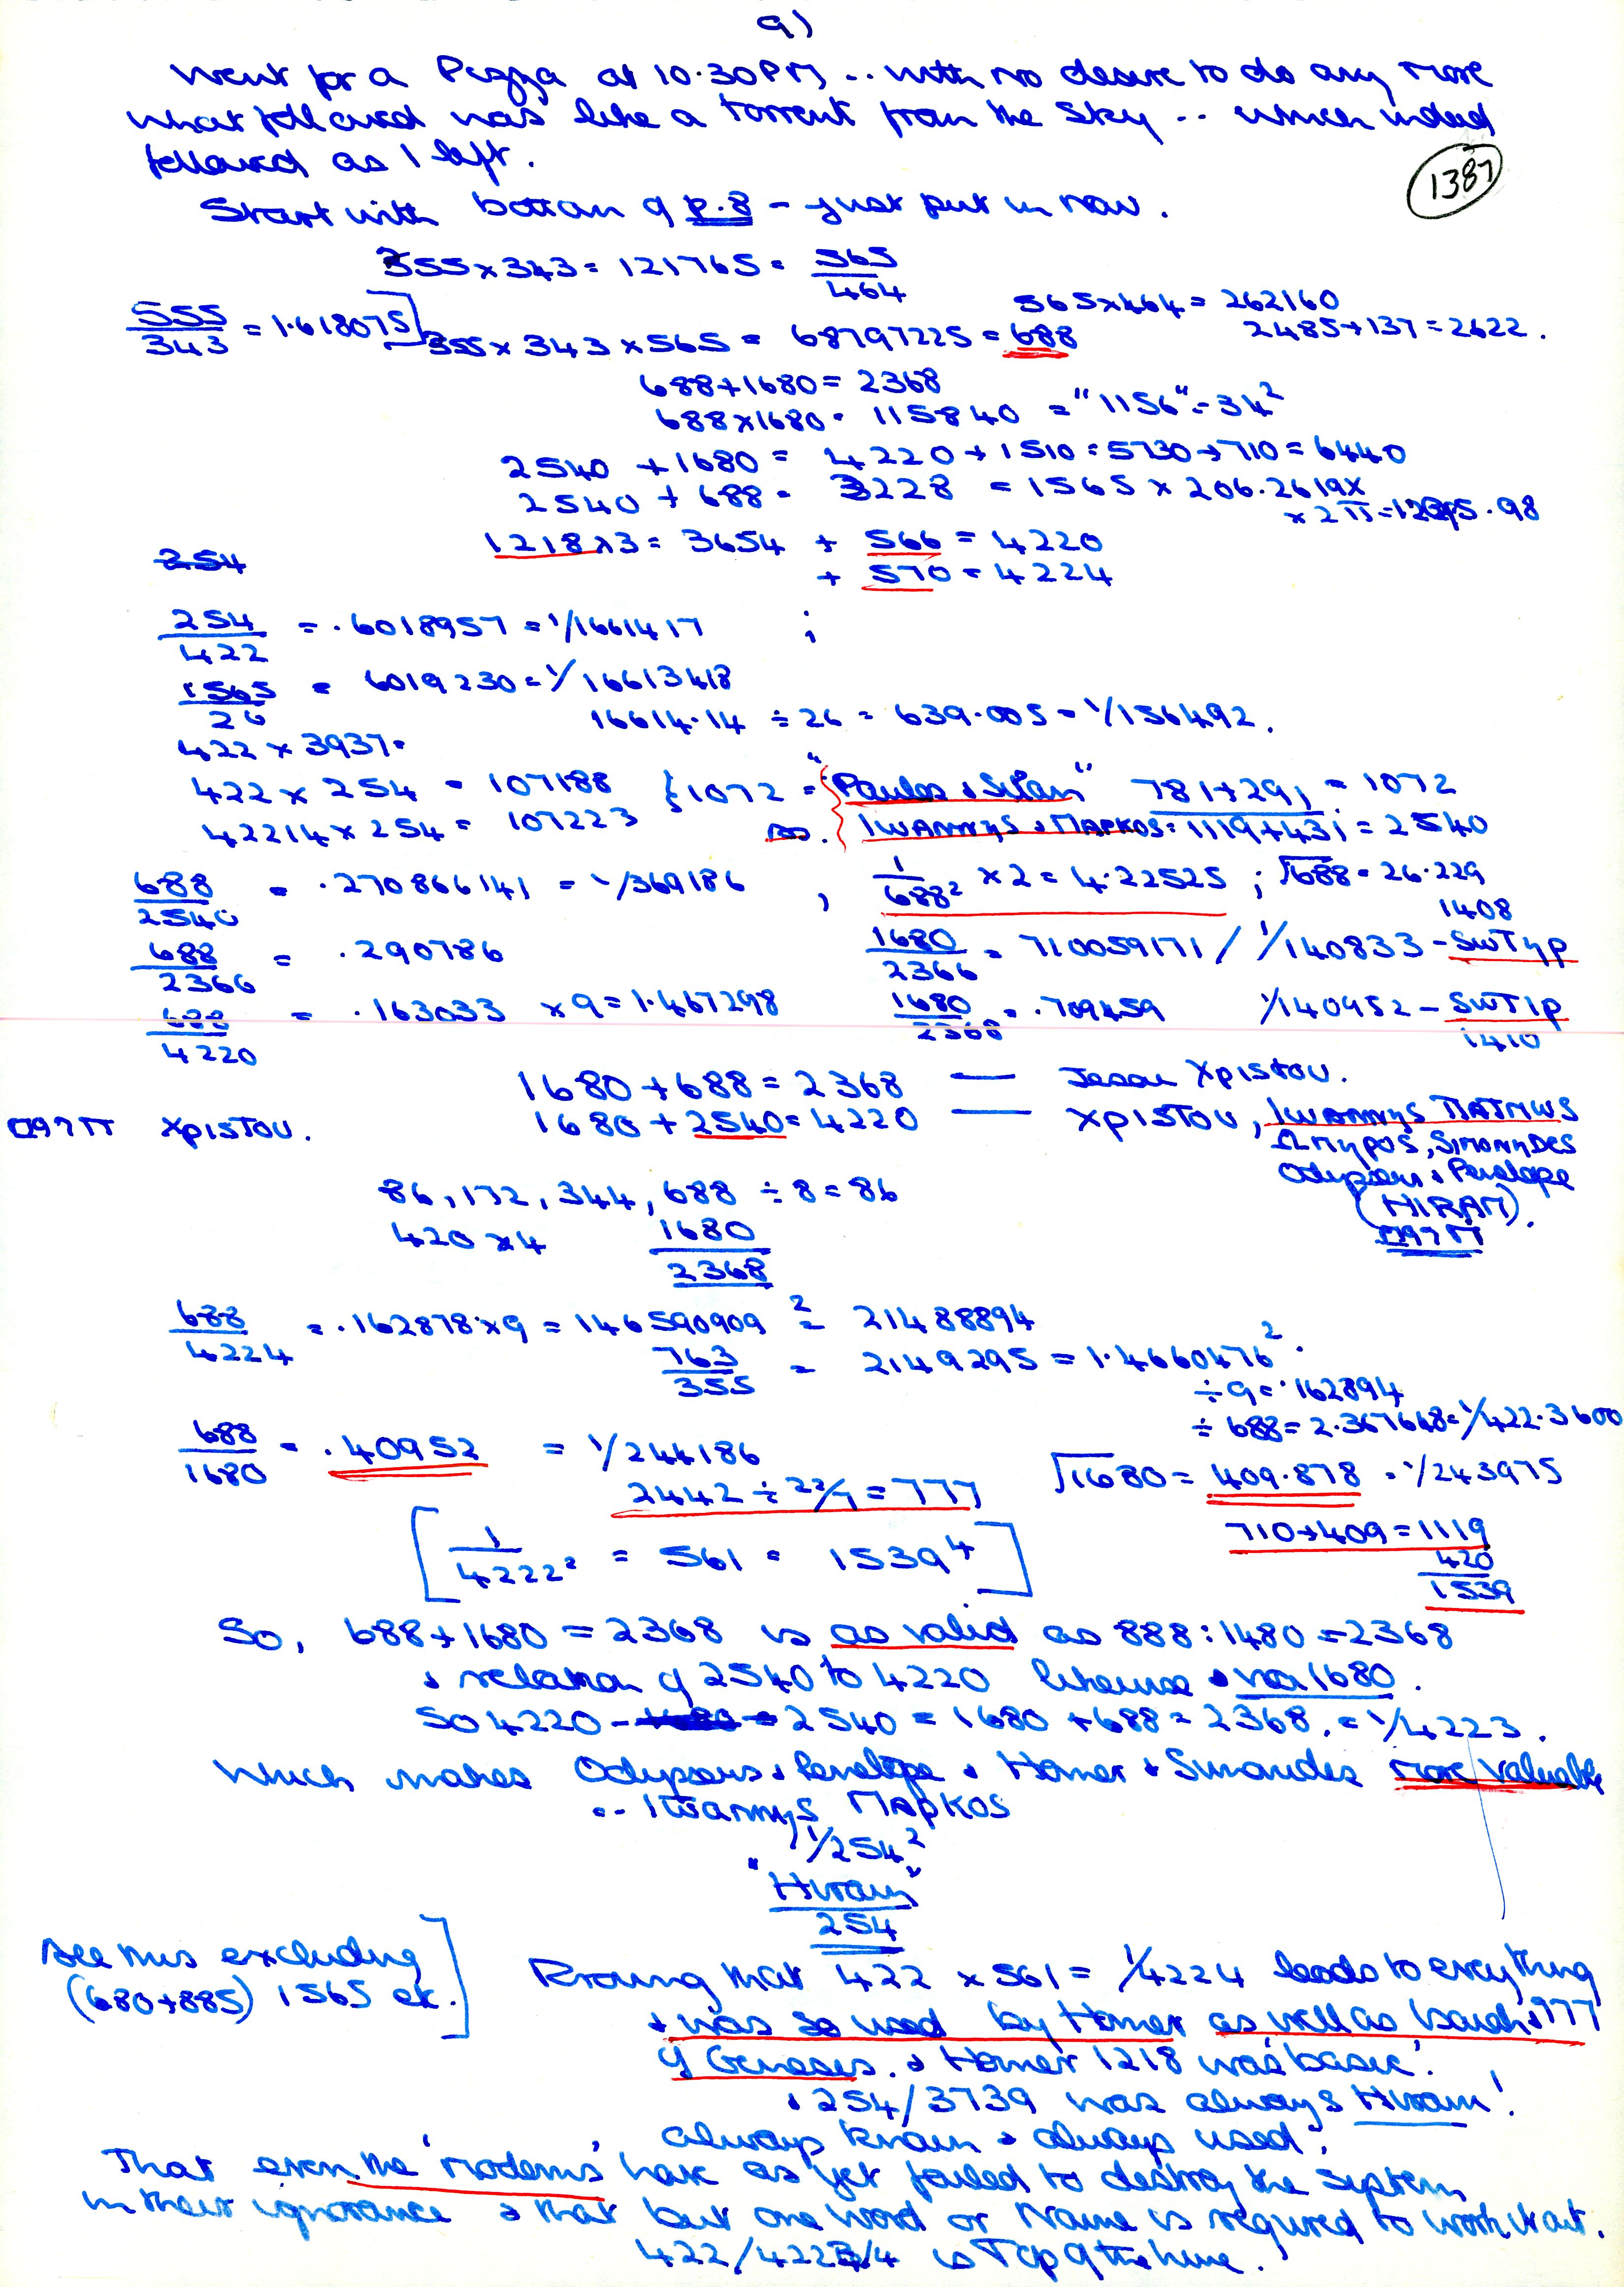 9)
Went for a Pizza at 10.30PM .. with no desire to do any more
what followed was like a torrent from the sky .. which indeed
followed as I left.
1387
Start with bottom of p.8 - just put in now.
355 x 343 = 121765 = 565/464
565 x 464 = 262160
555/343 = 1.618075]
355 x 343 x 565 = 68797225 = 688
2485 + 137 = 2622.
688 + 1680 = 2368
688 x 1680 = 115840 = "1156" = 34²
2540 + 1680 = 4220 + 1510 = 5730 + 710 = 6440
2540 + 688 = 3228 = 1565 x 206.2619x
1218 x 3 = 3654 + 566 = 4220
254
+ 570 = 4224
254/422 = .6018957 = 1/1661417 ;
1565/26 = 6019230 = 1/16613418
16614.14 ÷ 26 = 639.005 = 1/156492.
422 x 3937 =
422 x 254 = 107188 } 1072 = "Paulos & Silan" 781 + 291 = 1072
42214 x 254 = 107223
IWANNYS & MAPKOS = 1119 + 431 = 2540
688/2540 = .270866141 = 1/369186 , 1/688² x 2 = 4.22525 ; √688 = 26.229
1408
688/2366 = .290786
1680/2366 = 710059171 / 1/140833 - SWTyp
688/4220 = .163033 x 9 = 1.467298
1680/2368 = .709459 1/140952 - SWTIp
1410
1680 + 688 = 2368 — Jesou Xpistou.
XpISTOU.
1680 + 2540 = 4220 — XpISTOU, IWANNYS ΠATMWS
SIMONyDES
Odysseus & Penelope
(HIRAM).
86, 172, 344, 688 ÷ 8 = 86
420 x 4 1680
2368
688/4224 = .162878 x 9 = 146590909² = 21488894
763/355 = 2149295 = 1.4660476²
÷ 9 = .162894
÷ 688 = 2.367648 = 1/422.3600
688/1680 = .40952 = 1/244186
√1680 = 409.878 = 1/243975
2442 ÷ 22/7 = 777
710 + 409 = 1119
420
1539
[1/4222² = 561 = 1539⁴]
So, 688 + 1680 = 2368 is as valid as 888 : 1480 = 2368
& relation of 2540 to 4220 likewise & via 1680.
So 4220 - 2540 = 1680 + 688 = 2368. = 1/4223.
Which makes Odysseus & Penelope & Homer & Simonides more valuable
.. IWannys MApKOS
1/254²
"Hiram"
254
All this excluding
(680 + 885) 1565 etc.]
Proving that 422 x 561 = 1/4224 leads to everything
& was so used by Homer as well as Isaiah & 777
of Genesis. & Homer 1218 was 'basic'.
& 254/3739 was always Hiram!
always known & always used!
That even the 'moderns' have as yet failed to destroy the system
in their ignorance & that but one word or Name is required to work it out.
422/4223/4 is Top of the line.